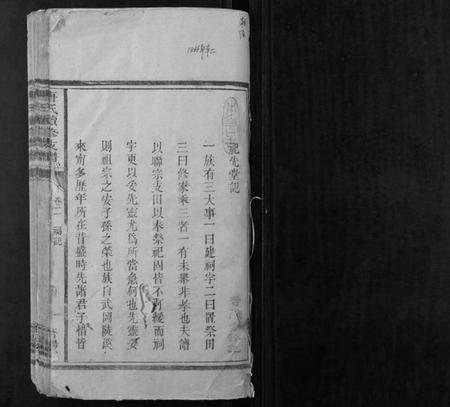 祀先堂記
一族有三大事一曰建祠宇二曰置祭田
三曰修家乘三者一有未舉非孝也夫譜
以聯宗支田以奉祭祀固皆不可緩而祠
宇更以妥先靈尤為所當急何也先靈妥
則祖宗之安子孫之榮也族自武岡陝
來甯多歷年所在昔盛時先諸君子惜皆
卷二
祠記